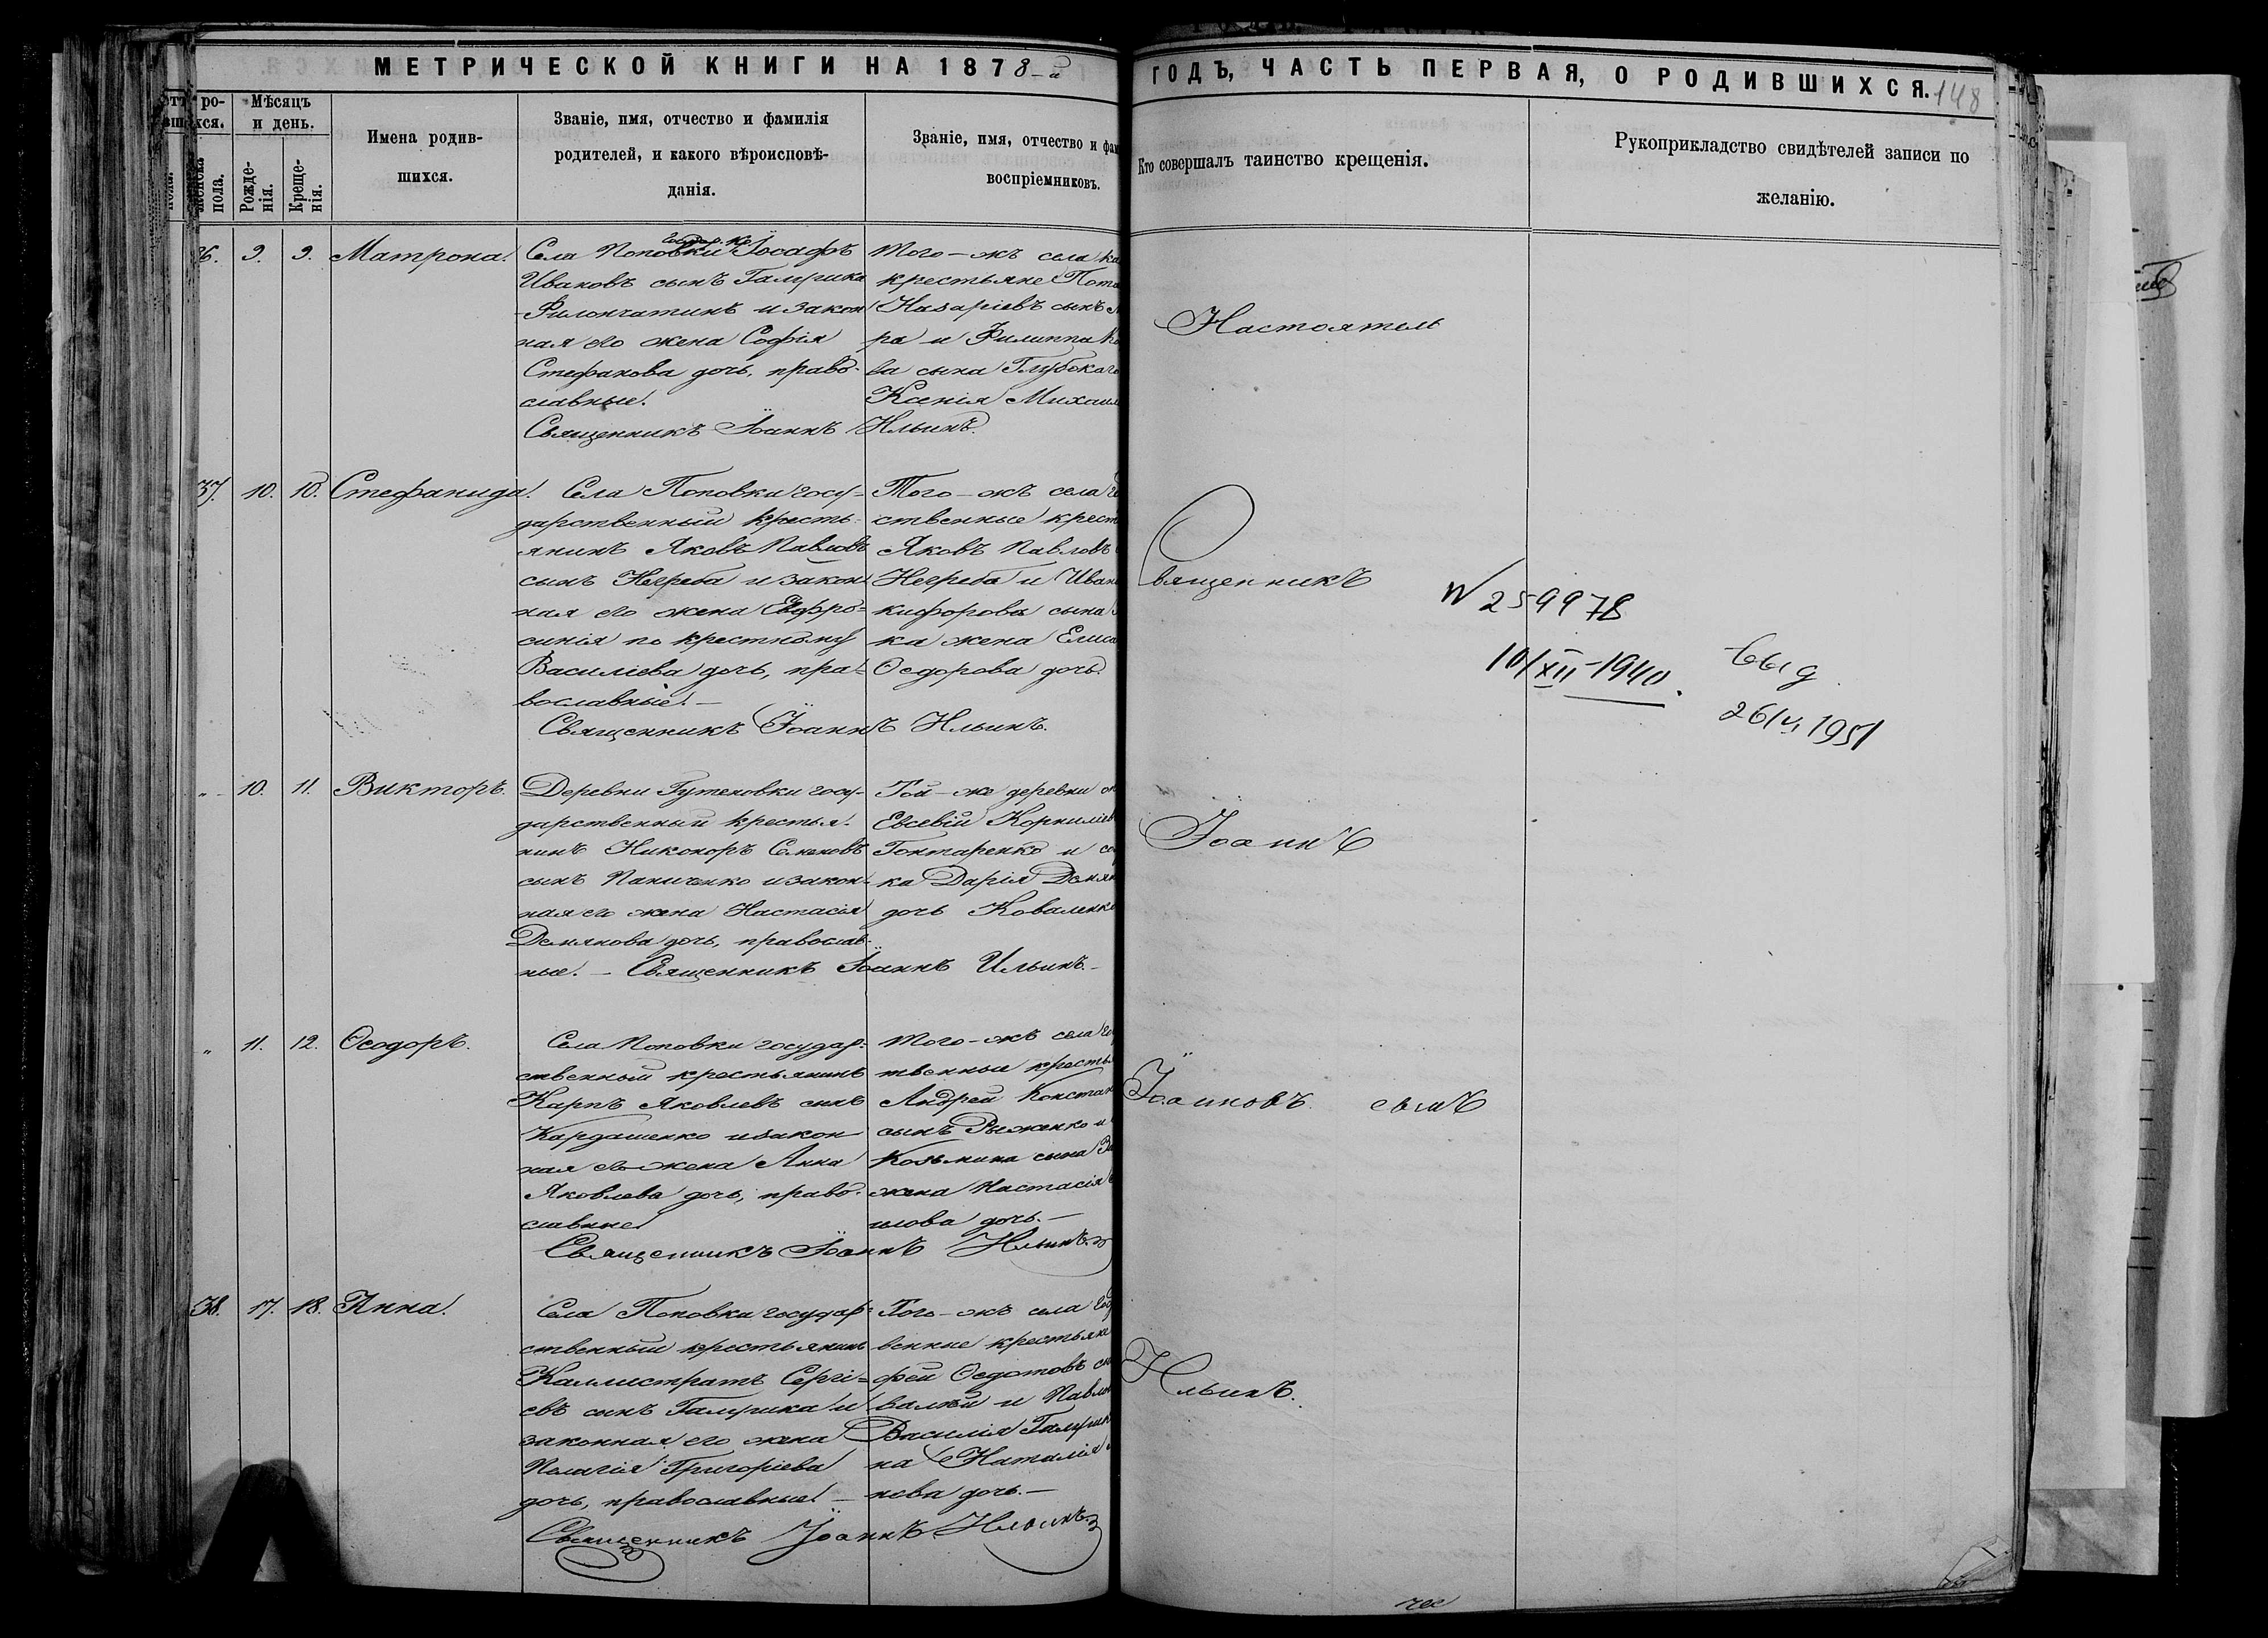 МЕТРИЧЕСКОЙ КНИГИ НА 1878-й
ГОДЪ, ЧАСТЬ ПЕРВАЯ, О РОДИВШИХСЯ. 148
Мѣсяцъ
и день.
Рожде-
нія.
Креще-
нія.
женска
пола.
Имена родив-
шихся.
Званіе, имя, отчество и фамилія
родителей, и какого вѣроисповѣ-
данія.
Званіе, имя, отчество и фам
воспріемниковъ.
Кто совершалъ таинство крещенія.
Рукоприкладство свидѣтелей записи по
желанію.
36. 9. 9. Матрона.
Села Поповки Іосафъ
Ивановъ сынъ Галушка
и закон
ная его жена Софія
Стефанова дочь, право-
славные.
Священникъ Іоаннъ Ильинъ.
Того-жъ села
крестьяне
Назаріевъ сынъ
ра и Филиппа
ва сына Глубокаго
Ксенія Михаил
37. 10. 10. Стефанида.
Села Поповки госу-
дарственный кресть-
янинъ Яковъ Павловъ
сынъ Негреба и закон-
ная его жена Евфро-
синія по крестному
Василіева дочь, пра-
вославные.
Священникъ Іоаннъ Ильинъ.
Того-жъ села
ственные крест
Яковъ Павловъ
Негреба и Иван
кифорова сына
ка жена Елиса
Ѳедорова дочь.
" 10. 11. Викторъ.
Деревни Гутековки госу-
дарственный крестья-
нинъ Никоноръ Семеновъ
сынъ Паниченко и закон-
ная его жена Настасія
Демянова дочь, православ-
ные. - Священникъ Іоаннъ Ильинъ. -
Той-же деревни
Евсевій Корниліев
Гонтаренко и
ка Дарія Демян
дочь Коваленко
" 11. 12. Ѳеодоръ.
Села Поповки государ-
ственный крестьянинъ
Карпъ Яковлевъ сынъ
Кардашенко и закон
ная его жена Анна
Яковлева дочь, право-
славные
Священникъ Іоаннъ Ильинъ
Того-жъ села
твенные кресть
Андрей Констан
сынъ Рыженко и
Козьмина сына
жена Настасія
илова дочь. -
38. 17. 18. Анна.
Села Поповки государ-
ственный крестьянинъ
Каллистратъ Сергі-
евъ сынъ Галушка и
законная его жена
Пелагія Григоріева
дочь, православные. -
Священникъ Іоаннъ Ильинъ
Того-жъ села
венные крестьяне
фей Ѳедотовъ
и Павла
Василія Галушк
на Наталія
нова дочь. -
Настоятель
Священникъ
Іоаннъ
Іоанновъ сынъ
Ильинъ.
N 259978
10/XII-1940.
выд
26/VI 1951